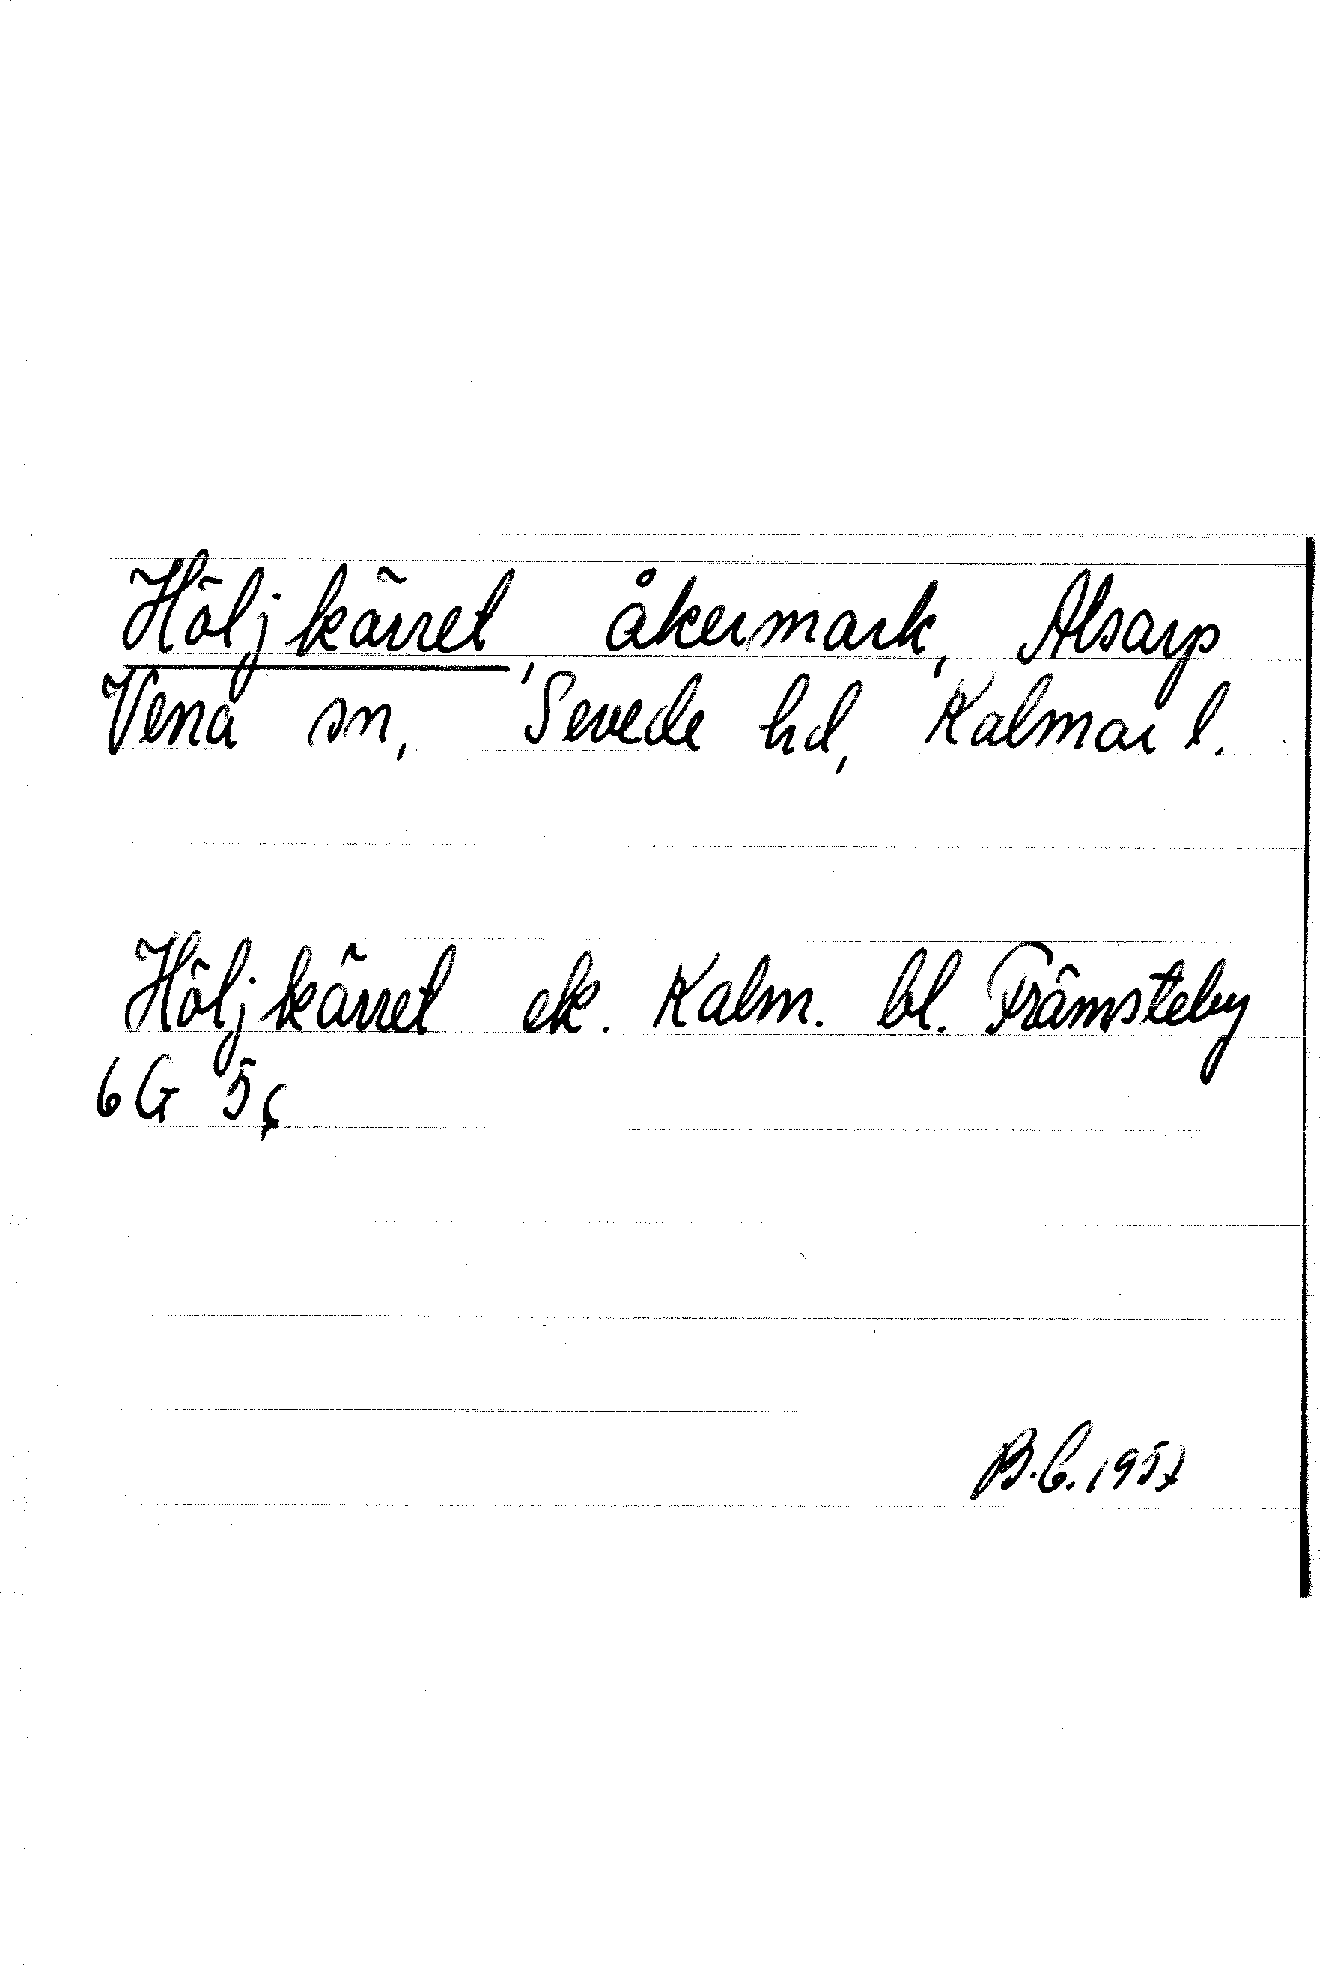 Höljkärret, åkermark, Alsarp
Vena sn, Sevede hd, Kalmar l.
Höljkärret ek. Kalm. bl. Främsteby
6G 5c
B.C. 1957